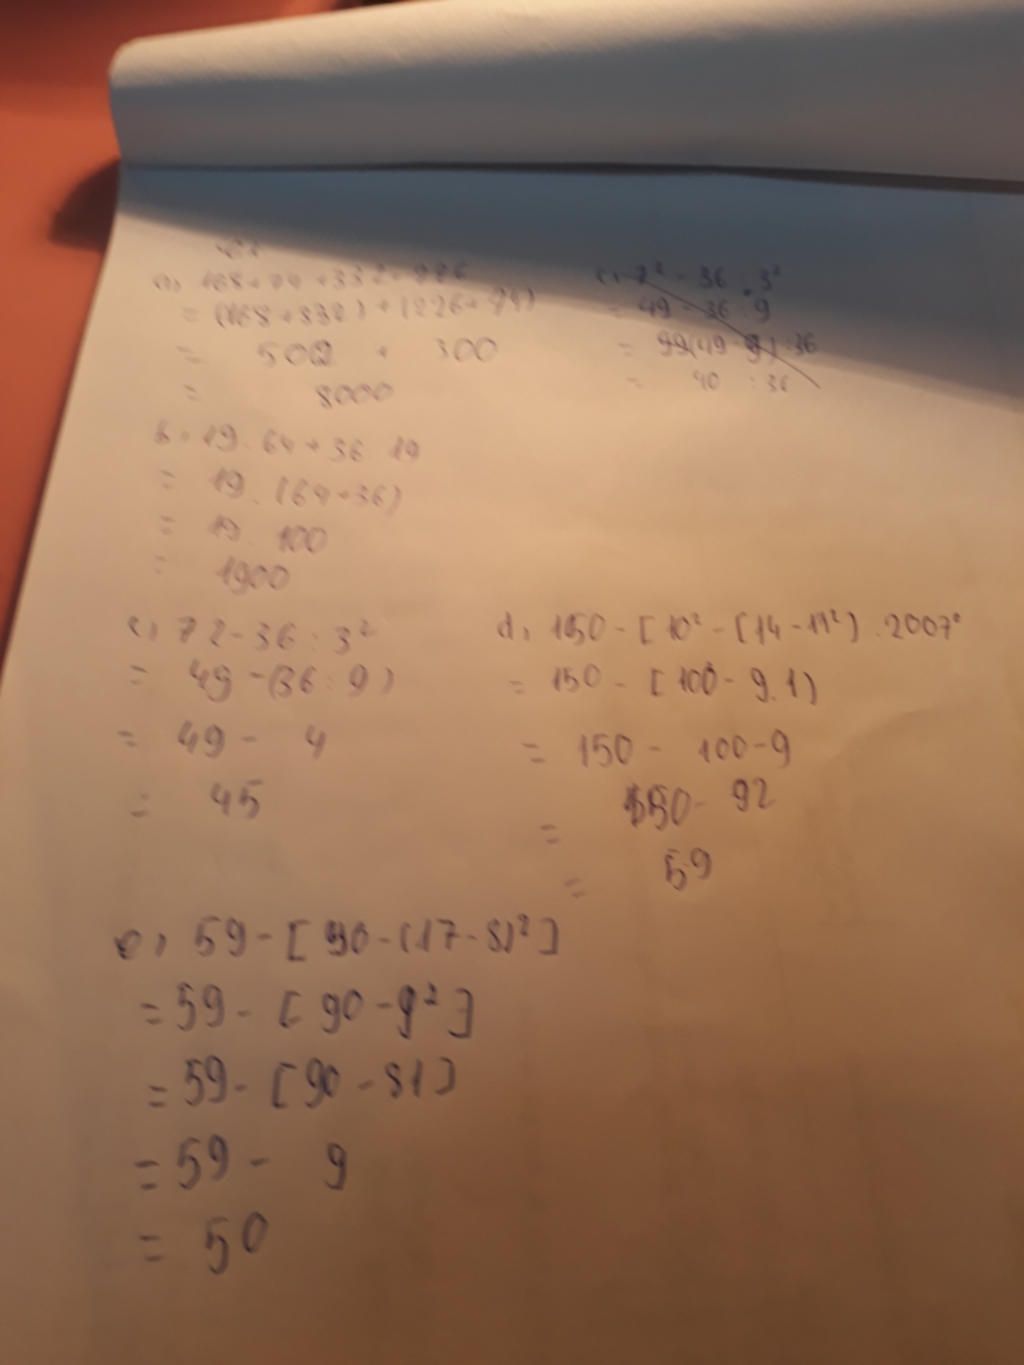 a, 168 + 74 + 332 + 226
= (168 + 332) + (226 + 74)
= 500 + 300
= 8000
c, 7² - 36 : 3²
= 49 - 36 : 9
= (49 - 9) : 36
= 40 : 36
b, 19 . 64 + 36 19
= 19 . (64 + 36)
= 19 . 100
= 1900
c, 72 - 36 : 3²
= 49 - (36 : 9)
= 49 - 4
= 45
d, 150 - [10² - (14 - 11²) . 2007⁰
= 150 - [100 - 9 . 1)
= 150 - 100 - 9
= 150 - 92
= 59
e, 59 - [90 - (17 - 8)²]
= 59 - [90 - 9²]
= 59 - [90 - 81]
= 59 - 9
= 50